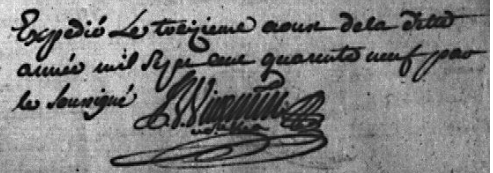 Expedié Le treizieme aoust dela ditte
année mil Sept cent quarente neuf par
le Soussigné